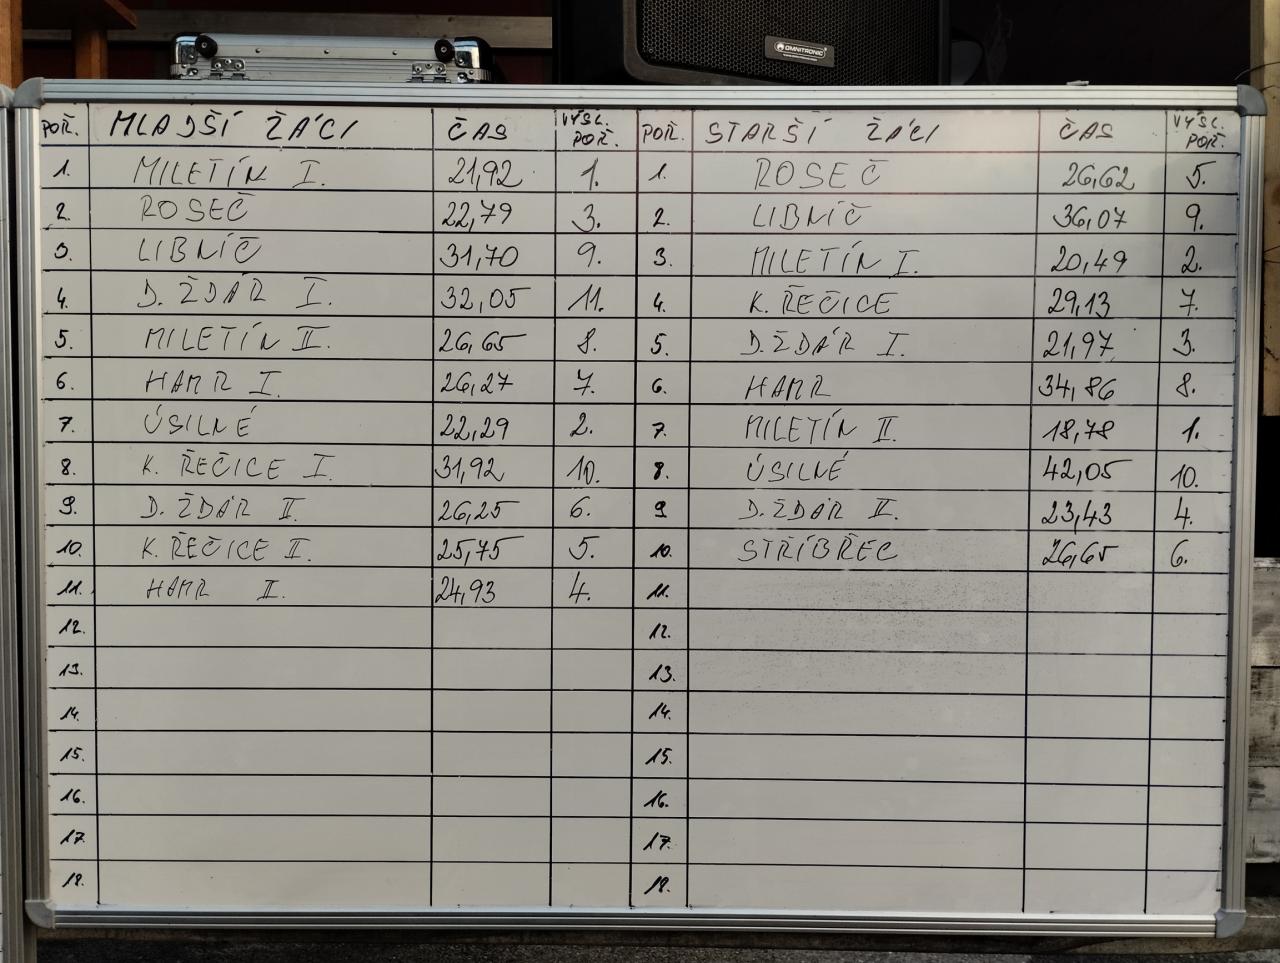 OMNITRONIC
POŘ. MLADŠÍ ŽÁCI ČAS VÝSL. POŘ. POŘ. STARŠÍ ŽÁCI ČAS VÝSL. POŘ.
1. MILETÍN I. 21,92 1. 1. ROSEČ 26,62 5.
2. ROSEČ 22,79 3. 2. LIBNÍČ 36,07 9.
3. LIBNÍČ 31,70 9. 3. MILETÍN I. 20,49 2.
4. D. ŽĎÁR I. 32,05 11. 4. K. ŘEČICE 29,13 7.
5. MILETÍN II. 26,65 8. 5. D. ŽDÁR I. 21,97 3.
6. HAMR I. 26,27 7. 6. HAMR 34,86 8.
7. ÚSILNÉ 22,29 2. 7. MILETÍN II. 18,78 1.
8. K. ŘEČICE I. 31,92 10. 8. ÚSILNÉ 42,05 10.
9. D. ŽDÁR II. 26,25 6. 9 D. ŽDÁR II. 23,43 4.
10. K. ŘEČICE II. 25,75 5. 10. STŘÍBŘEC 26,65 6.
11. HAMR II. 24,93 4. 11.
12. 12.
13. 13.
14. 14.
15. 15.
16. 16.
17. 17.
18. 18.